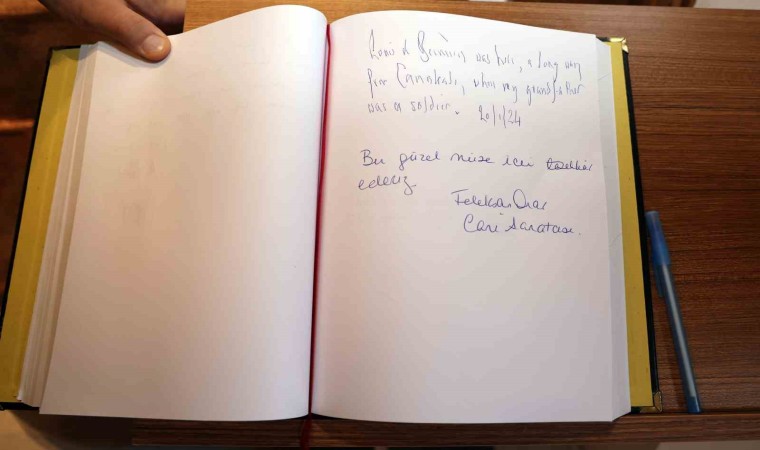 Louis de Bernières was here, a long way
from Canakkale, when my grandfather
was a soldier. 20/1/24
Bu güzel müze için teşekkür
ederiz
Feleksan Onar
Cam Sanatçısı.